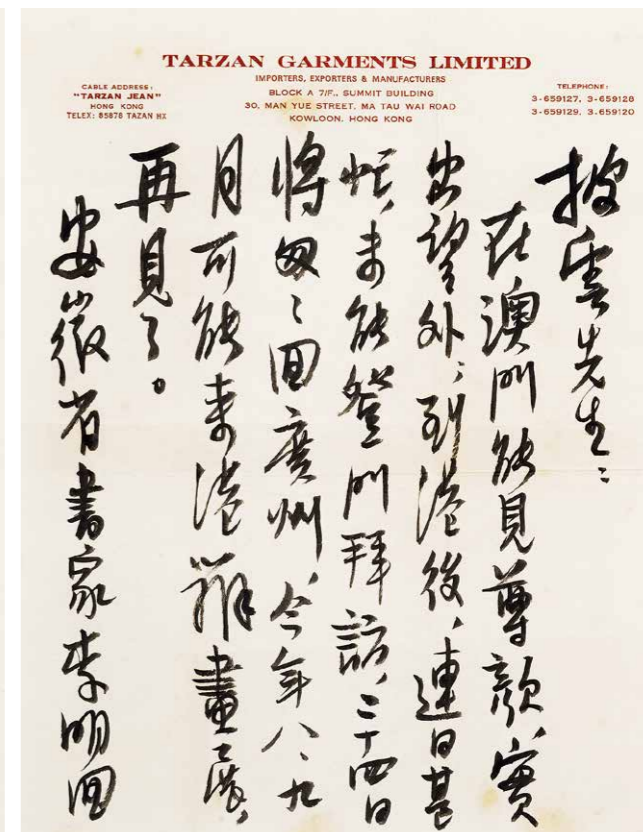 TARZAN GARMENTS LIMITED
IMPORTERS, EXPORTERS & MANUFACTURERS
BLOCK A 7/F., SUMMIT BUILDING
30, MAN YUE STREET, MA TAU WAI ROAD
KOWLOON, HONG KONG
CABLE ADDRESS:
"TARZAN JEAN"
HONG KONG
TELEX: 85878 TAZAN HX
TELEPHONE:
3-659127, 3-659128
3-659129, 3-659120
披雲先生：
在澳門能見尊顏、實
出望外；到港後，連日甚
忙，未能登門拜訪，二十四日
將匆匆回廣州，今年八、九
月可能來港辦畫展，
再見了。
安徽省書家李明回